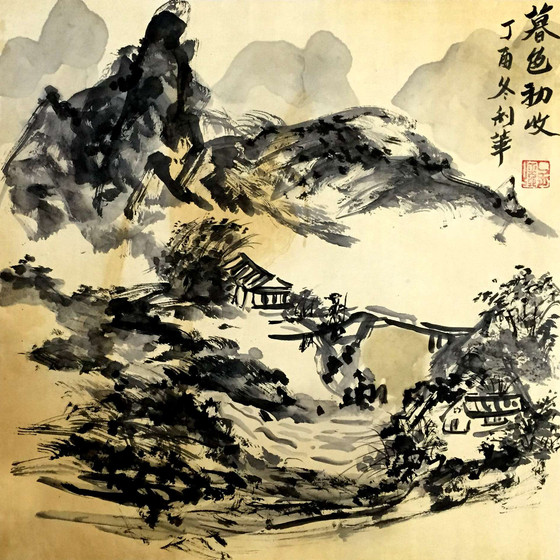 暮色初收
丁酉冬利華